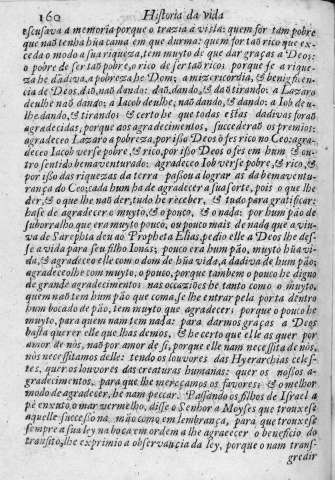 160 Historia da vida
escusava a memoria porque o trazia á vista: quem for tam pobre
que naõ tenha hũa cama em que durma: quem for taõ rico que ex-
ceda o modo a sua riqueza, tem muyto de que dar graças a Deos:
o pobre de ser taõ pobre, o rico de ser taõ rico: porque se a rique-
za he dadiva, a pobreza he Dom; a mizericordia, & benignifi-
encia de Deos, dá, naõ dando: daõ, dando, & dá tirando: a Lazaro
deulhe naõ dando; a Iacob deulhe, naõ dando, & dando; a Iob deu
lhe dando, & tirando: & certo he que todas estas dadivas foraõ
agradecidas, porque aos agradecimentos, succederaõ os premios:
agradeceo Lazaro a pobreza, por isso Deos o fes rico no Ceo; agra-
deceo Iacob verse pobre, & rico, por isso Deos o fes em hum & ou-
tro sentido bemaventurado: agradeceo Iob verse pobre, & rico, &
por isso das riquezas da terra passou a lograr as da bemaventu-
rança do Ceo; cada hum ha de agradecer a sua sorte, pois o que lhe
der, & o que lhe naõ der, tudo he receber, & tudo para gratificar:
hase de agradecer o muyto, & o pouco, & o nada: por hum paõ de
suborralho que era muyto pouco, ou pouco mais de nada que a viu-
va de Sarephta deu ao Propheta Elias, pedio elle a Deos lhe des-
se a vida para seu filho Ionas; pouco era hum paõ, muyto hũa vi-
da, & agradeceo elle com o dom de hũa vida, a dadiva de hum paõ;
agradeceolhe com muyto, o pouco, porque tambem o pouco he digno
de grande agradecimento; nas occaziões he tanto como o muyto,
quem naõ tem hum paõ que coma, se lhe entrar pela porta dentro
hum bocado de paõ, tem muyto que agradecer; porque o pouco he
muyto, para quem nam tem nada: para darmos graças a Deos
basta querer elle que lhas demos, & he certo que elle as quer por
amor de nòs, naõ por amor de si, porque elle nam necessita de nòs,
nòs necessitamos delle: tendo os louvores das Hyerarchias celes-
tes, quer os louvores das creaturas humanas: quer os nossos a-
gradecimentos, para que lhe mereçamos os favores; & o melhor
modo de agradecer, he nam peccar. Passando os filhos de Israel a
pé enxuto, o mar vermelho, disse o Senhor a Moyses que trouxesse
aquelle successo na mão como em lembrança, para que trouxesse
sempre a sua ley na boca em ordem a lhe agradecer o beneficio do
transito, lhe exprimio a observancia da ley, porque o nam trans-
gredir